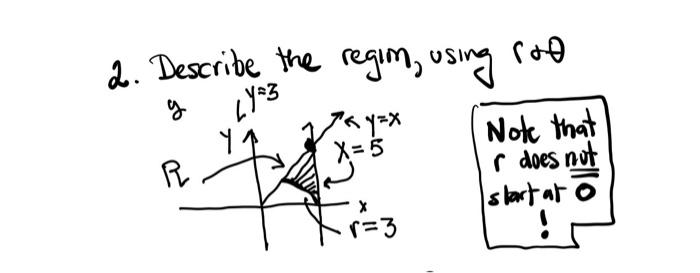 2. Describe the region, using r & θ
y
y=3
y
y=x
x=5
R
x
r=3
Note that
r does not
start at 0
!